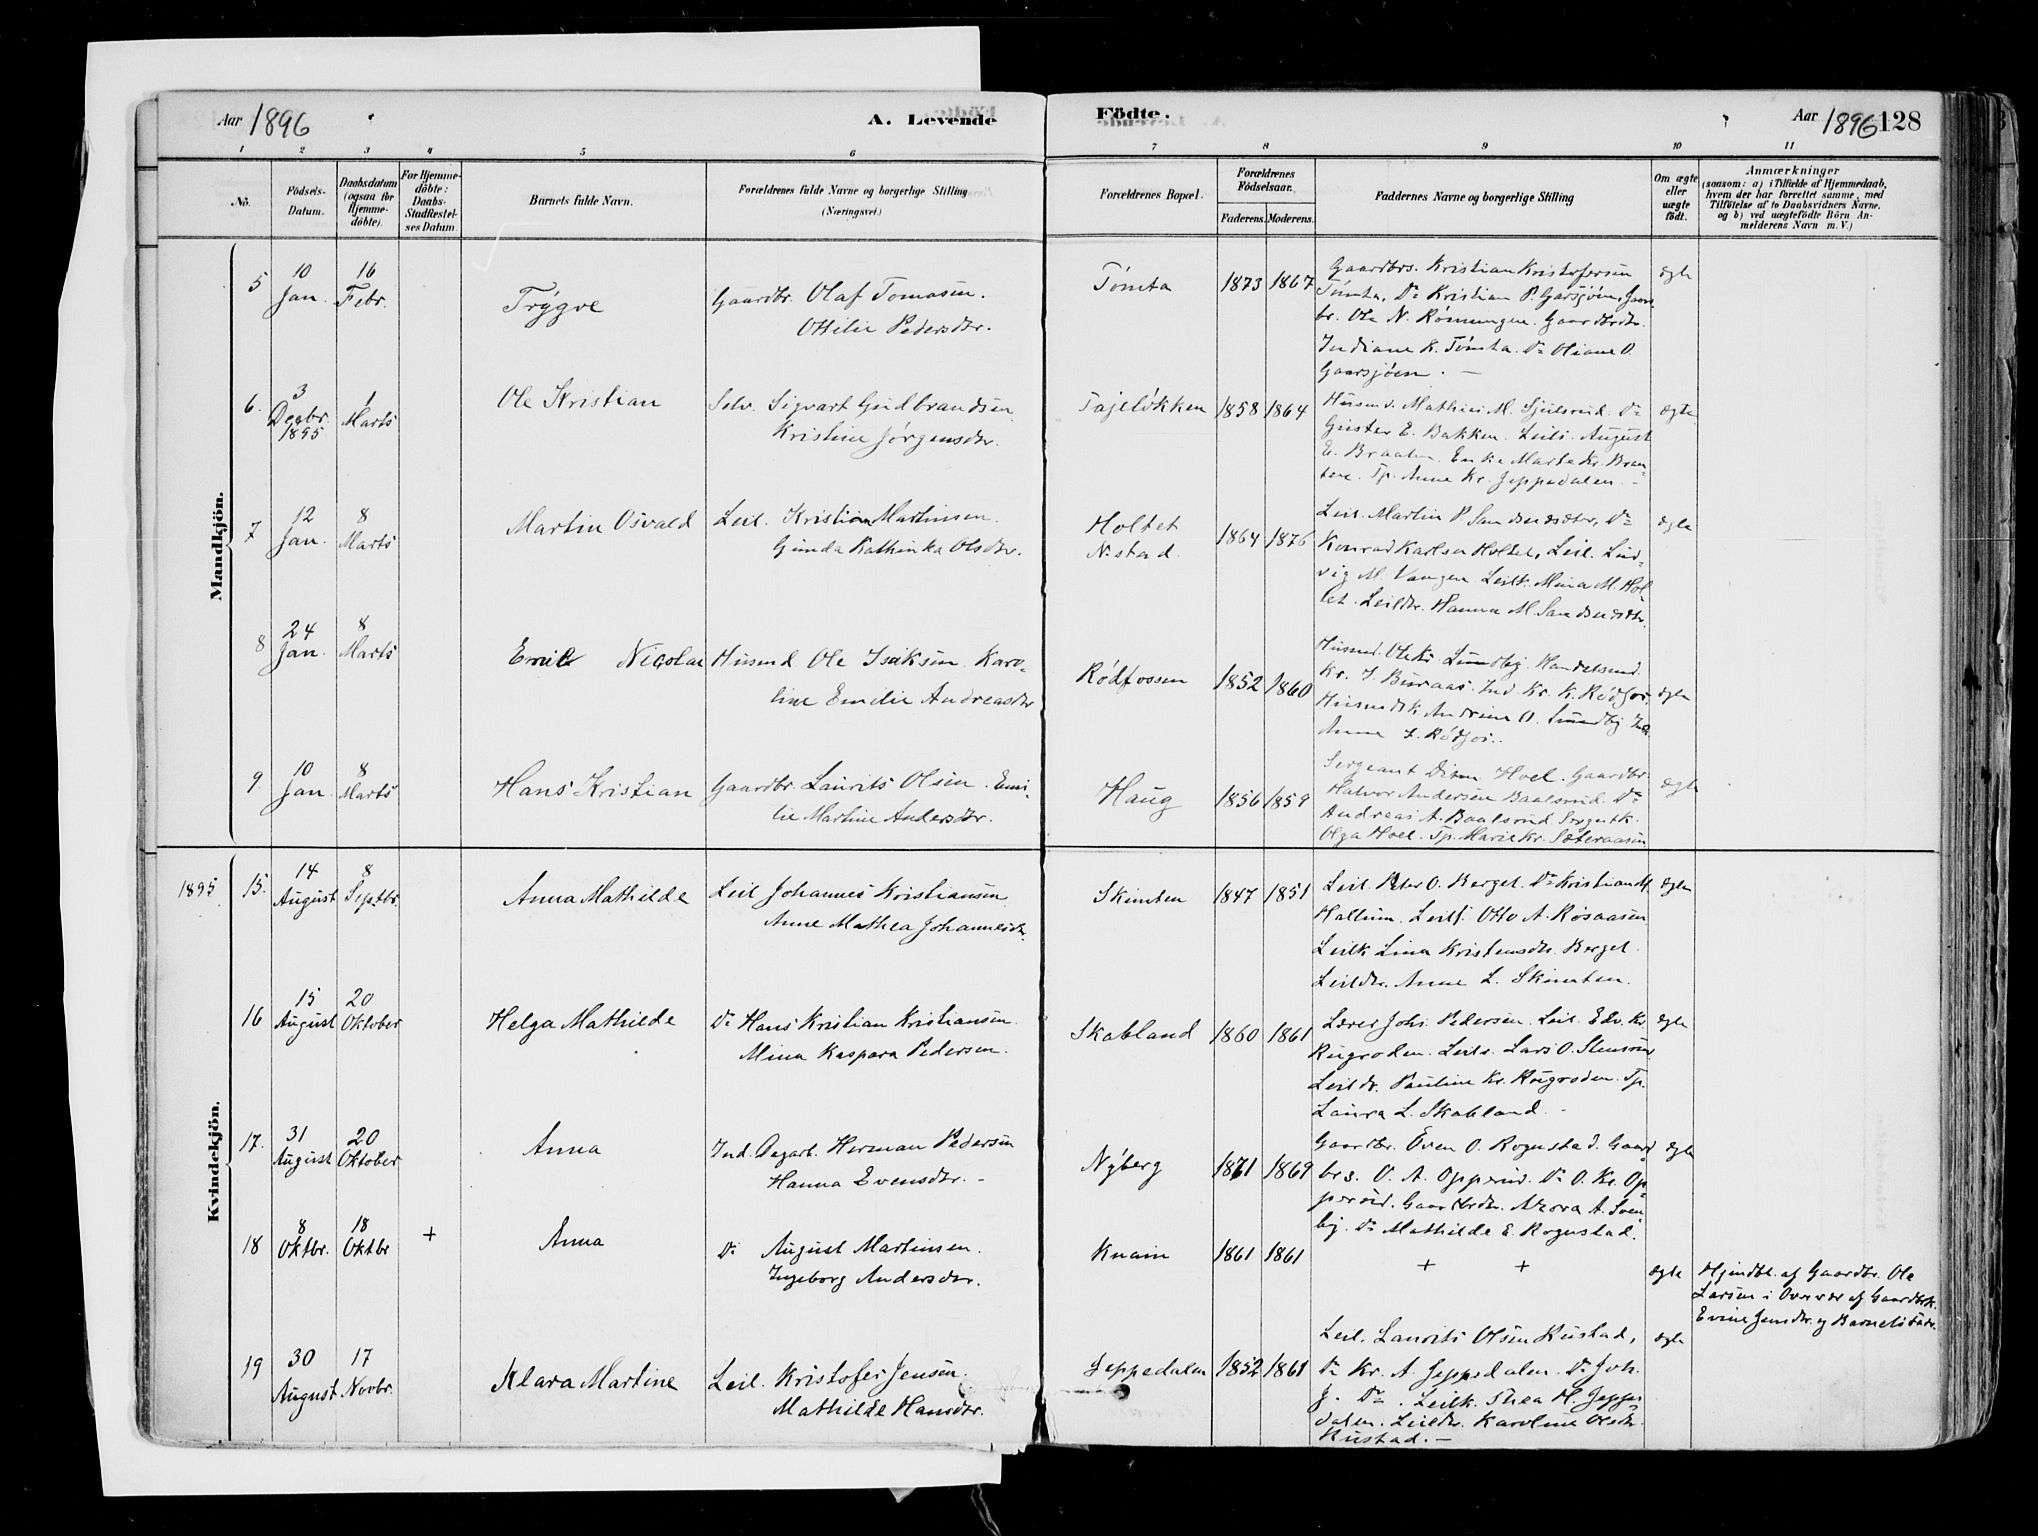 Aar 1896
A. Levende
Födte.
Aar 1896 128
1 2 3 4 5 6 7 8 9 10 11
No.
Födsels-
Datum.
Daabsdatum
(ogsaa for
Hjemme-
döbte).
For Hjemme-
döbte:
Daabs-
Stadfæstel-
ses Datum.
Barnets fulde Navn.
Forældrenes fulde Navne og borgerlige Stilling
(Næringsvei.)
Forældrenes Bopæl.
Forældrenes
Födselsaar.
Faderens. Moderens.
Faddernes Navne og borgerlige Stilling
Om ægte
eller
uægte
födt.
Anmærkninger
(saasom: a) i Tilfælde af Hjemmedaab,
hvem der har forrettet samme, med
Tilföielse af to Daabsvidners Navne,
og b) ved uægtefödte Börn An-
melderens Navn m. V.)
Mandkjön.
5
10
Jan.
16
Febr.
Trygve
Gaardbr. Olaf Tomasen.
Ottilie Pedersdtr.
Tömta
1873 1867
Gaardbrs. Kristian Kristofersen
Tömta. Do Kristian P. Garsjöen, Gaard
br. Ole N. Rönningen. Gaardbrdtr.
Indiane K. Tömta. Do Oliane O.
Gaarsjöen. —
ægte
6.
3
Decbr.
1895
1
Marts
Ole Kristian
Selv. Sigvart Gudbrandsen
Kristine Jörgensdtr.
Tajelökken
1858 1864
Husmd. Mathias M. Sjulsrud. Do
Gustav E. Bakken. Leils. August
E. Braaten. Enke Marte Kr. Braa-
ten. Tp. Anne Kr. Jeppedalen. -
ægte
7
12
Jan.
8
Marts
Martin Osvald
Leil. Kristian Martinsen.
Gunda Kathinka Olsdtr.
Holtet
N.stad.
1864 1876
Leil. Martin P. Sandsnesætr, Do
Konrad Karlsen Holtet, Leil. Lud-
vig M. Vangen. Leilk. Mina M. Hol-
tet. Leildtr. Hanna M.
ægte
8
24
Jan.
8
Marts
Emil Nicolai
Husmd Ole Isaksen. Karo-
line Emilie Andreasdtr
Rödfossen
1852 1860
Husmd. Ole Kr. Lundby. Handelsmd.
Kr. J. Buraas. Ind. Kr. K. Rödfos.
Husmdsk Andrine O. Lundby Ind.
Anne L. Rödfos..
ægte
9.
10
Jan.
8
Marts
Hans Kristian
Gaardbr. Laurits Olsen. Emi-
lie Martine Andersdtr.
Haug
1856 1859
Sergeant Hoel. Gaardbr.
Halvor Andersen Baalsrud. Do
Andreas A. Baalsrud Sergntk.
Olga Hoel. Tp. Marie Kr. Sæteraasen
ægte
Kvindekjön.
1895
15.
14
August
8
Septbr.
Anna Mathilde
Leil Johannes Kristiansen
Anne Mathea Johannesdtr.
Skimten
1847 1851
Leil. Peter O. Berget. Do Kristian M.
Hallum. Leils. Otto A. Rösaasen
Leilk Lina Kristensdtr. Berget.
Leildtr. Anne L. Skimten.
ægte
16
15
August
20
Oktober
Helga Mathilde
Do Hans Kristian Kristiansen.
Mina Kaspara Pedersen.
Skabland
1860 1861
Lærer Johs. Pedersen. Leil. Edv. Kr.
Rugroden. Leils. Lars O. Stensrud
Leildr. Pauline Kr. Rugroden. Tp.
Laura L. Skabland. -
ægte
17.
31
August
20
Oktober
Anna
Ind. Dagarb. Herman Pedersen
Hanna Evensdtr. -
Nyberg
1871 1869
Gaardbr. Even O. Rognstad. Gaard
brs. O. A. Opperud. Do O. Kr. Op-
perud. Gaardbrdtr. A. Svен-
by. Do Mathilde E. Rognstad.
ægte
18
8
Oktbr.
18
Oktbr
+
Anna
Do August Martinsen.
Ingeborg Andersdtr.
Knain
1861 1861
+ +
ægte
Hjemdbt. af Gaardbr. Ole
Larsen i Overvær af Gaardbrk.
Evine Jensdtr. og Barnets Fader.
19
30
August
17
Novbr.
Klara Martine
Leil. Kristofer Jensen.
Mathilde Hansdtr.
Jeppedalen
1852 1861
Leil. Laurits Olsen Rustad,
Do Kr. A. Jeppedalen. Do Joh.
J. Do. Leilk. Thea H. Jeppe-
dalen. Leildtr. Karoline Olsdtr.
Rustad. —
ægte